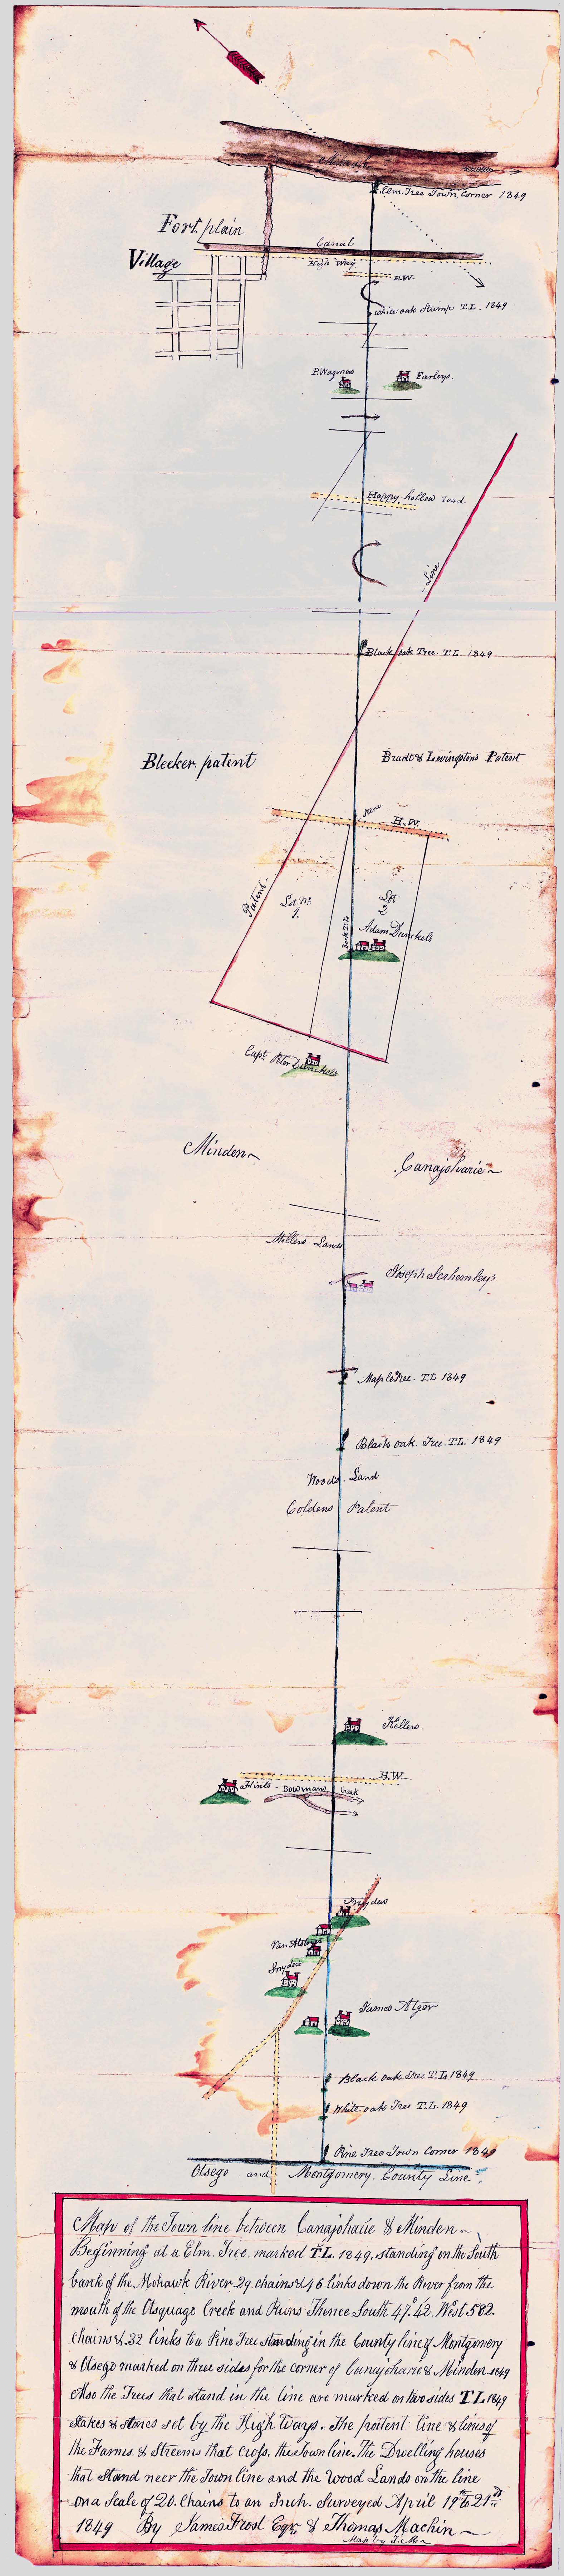 Mohawk
Elm Tree Town Corner 1849
Fort plain
Village
Canal
High Way
H.W.
White oak Stump T.L. 1849
P. Wagoners
Farleys.
Happy hollow road
Line
Black oak Tree. T.L. 1849
Bleeker patent
Bradt & Livingstons Patent
Stone
H.W.
Patent
Lot No. 1.
Lot 2
Adam Dunckels
T.L.
Capt. Peter Dunckels
Minden
Canajoharie
Millers Lands
Joseph Scrhomley's
Maple Tree. T.L 1849
Black oak. Tree. T.L. 1849
Woods. Land
Coldens Patent
Kellers.
H.W.
Flints
Bowmans Creek
Snyders
Van Alstines
Snyders
James Alger
Black oak Tree T.L 1849
White oak Tree T.L. 1849
Pine Tree Town Corner 1849
Otsego and Montgomery. County Line.
Map of the Town line between Canajoharie & Minden
Beginning at a Elm. Tree. marked T.L. 1849, standing on the South
bank of the Mohawk River 29. chains & 46 links down the River from the
mouth of the Otsquago Creek and Runs Thence South 47°.42. West 582.
chains &.32 links to a Pine Tree standing in the County line of Montgomery
& Otsego marked on three sides for the corner of Canajoharie & Minden 1849
Also the Trees that stand in the line are marked on two sides T.L 1849
Stakes & stones set by the High Ways. The pattent line & lines of
the Farms. & Streems that cross, the Town line. The Dwelling houses
that stand neer the Town line and the Wood Lands on the line
on a Scale of 20. Chains to an Inch. Surveyed April 19th to 21st
1849 By James Frost Eqr. & Thomas Machin
Map by T. M